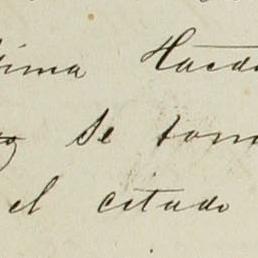 tima Hacd
se tom
el citado